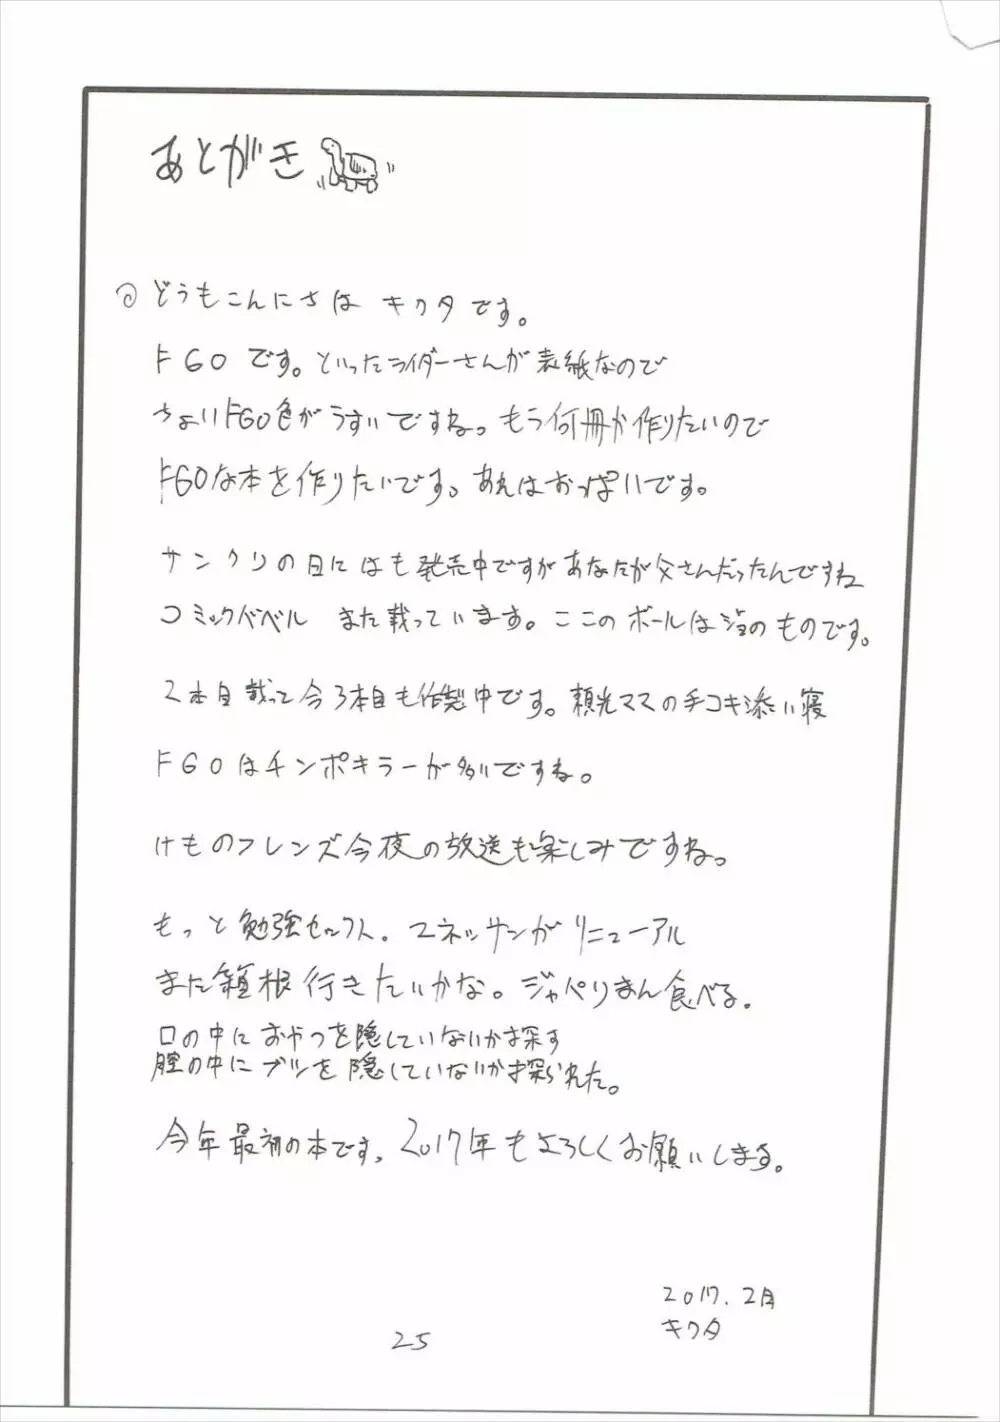 あとがき
どうもこんにちは キクタです。
FGOです。といったライダーさんが表紙なので
ちょいFGO色がうすいですね。もう何冊か作りたいので
FGOな本を作りたいです。あれはおっぱいです。
サンクリの日にはも発売中ですがあなたが父さんだったんですね
コミックバベル また載っています。ここのボールはジョのものです。
2本目載って今3本目も作製中です。頼光ママの手コキ添い寝
FGOはチンポキラーが多いですね。
けものフレンズ今夜の放送も楽しみですね。
もっと勉強セロクト。ユネッサンがリニューアル
また箱根行きたいかな。ジャパリまん食べる。
口の中におやつを隠していないか探す
膣の中にブツを隠していないか探られた。
今年最初の本です。2017年もよろしくお願いします。
2017.2月
キクタ
25